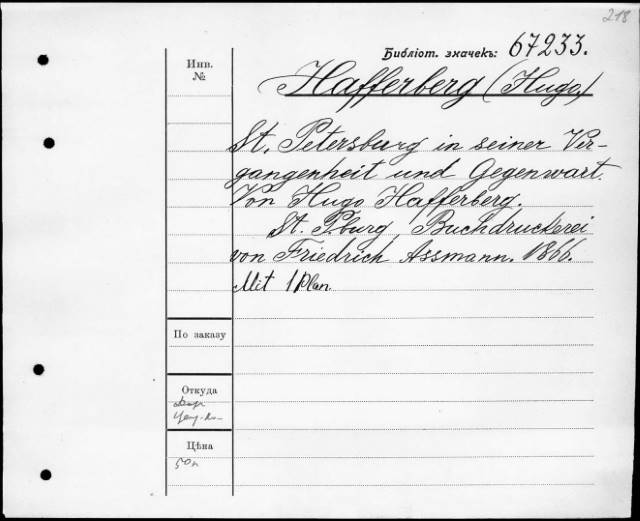 218
Библіот. значекъ: 67233.
Инв.
№
Hafferberg (Hugo)
St. Petersburg in seiner Ver-
gangenheit und Gegenwart.
Von Hugo Hafferberg.
St. P.burg, Buchdruckerei
von Friedrich Assmann. 1866.
Mit 1 Plan.
По заказу
Откуда
Цѣна
50к